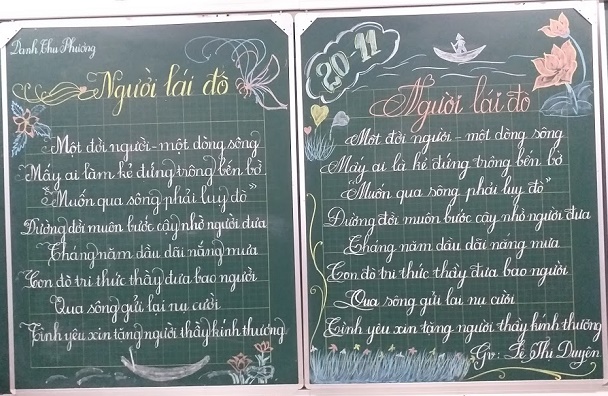 Danh Thu Phương
Người lái đò
Một đời người - một dòng sông
Mấy ai làm kẻ đứng trông bến bờ
"Muốn qua sông phải luỵ đò"
Đường đời muôn bước cậy nhờ người đưa
Tháng năm dầu dãi nắng mưa
Con đò tri thức thầy đưa bao người
Qua sông gửi lại nụ cười
Tình yêu xin tặng người thầy kính thương
20-11
Người lái đò
Một đời người - một dòng sông
Mấy ai là kẻ đứng trông bến bờ
"Muốn qua sông phải luỵ đò"
Đường đời muôn bước cậy nhờ người đưa
Tháng năm dầu dãi nắng mưa
Con đò tri thức thầy đưa bao người
Qua sông gửi lại nụ cười
Tình yêu xin tặng người thầy kính thương
Gv: Lê Thị Duyên